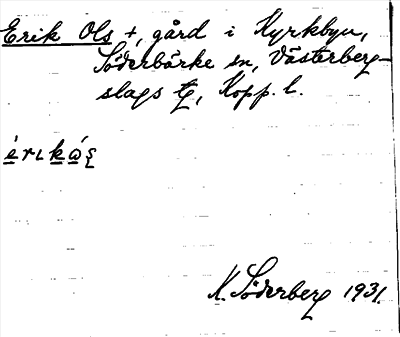 Erik Ols +, gård i Kyrkbyn,
Söderbärke sn, Västerberg-
slags tg, Kopp. l.
K. Söderberg 1931.